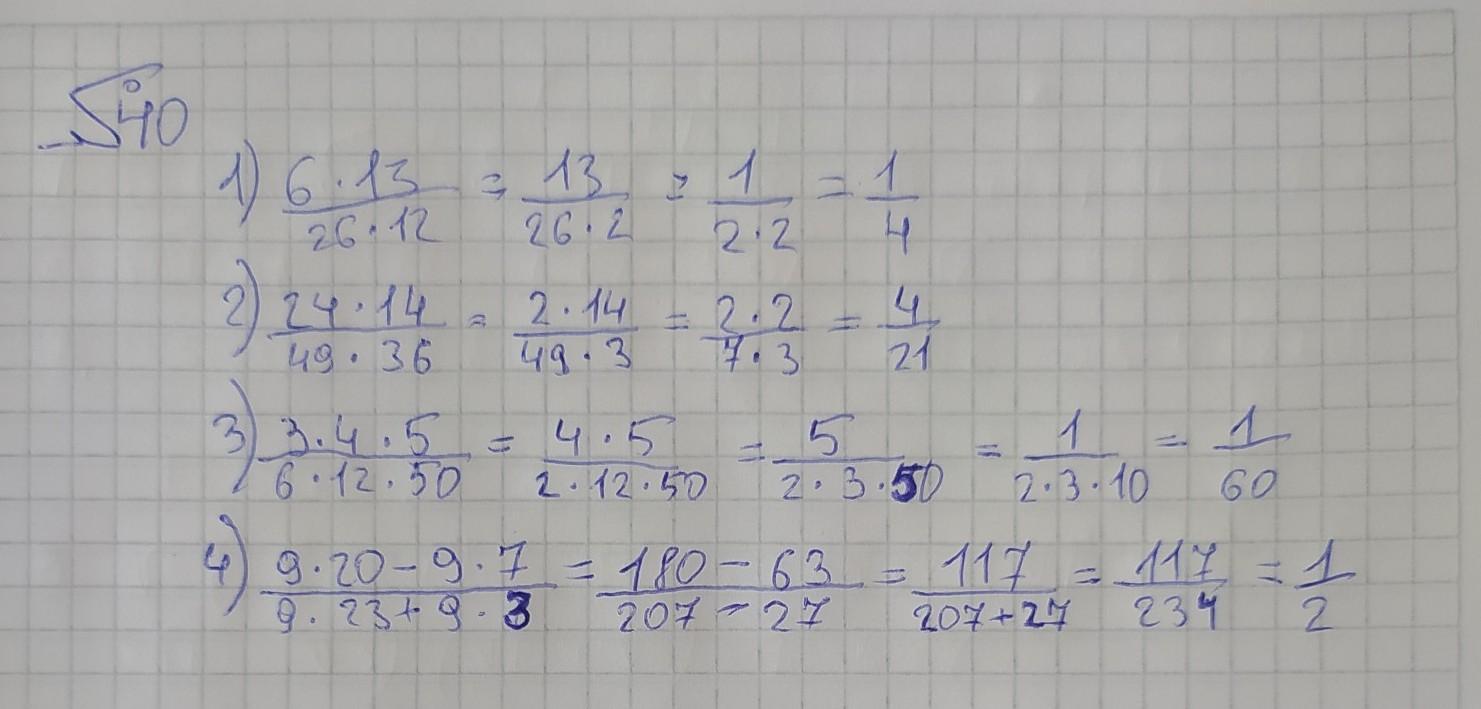 № 40
1) 6·13/26·12 = 13/26·2 = 1/2·2 = 1/4
2) 24·14/49·36 = 2·14/49·3 = 2·2/7·3 = 4/21
3) 3·4·5/6·12·50 = 4·5/2·12·50 = 5/2·3·50 = 1/2·3·10 = 1/60
4) 9·20-9·7/9·23+9·3 = 180-63/207-27 = 117/207+27 = 117/234 = 1/2